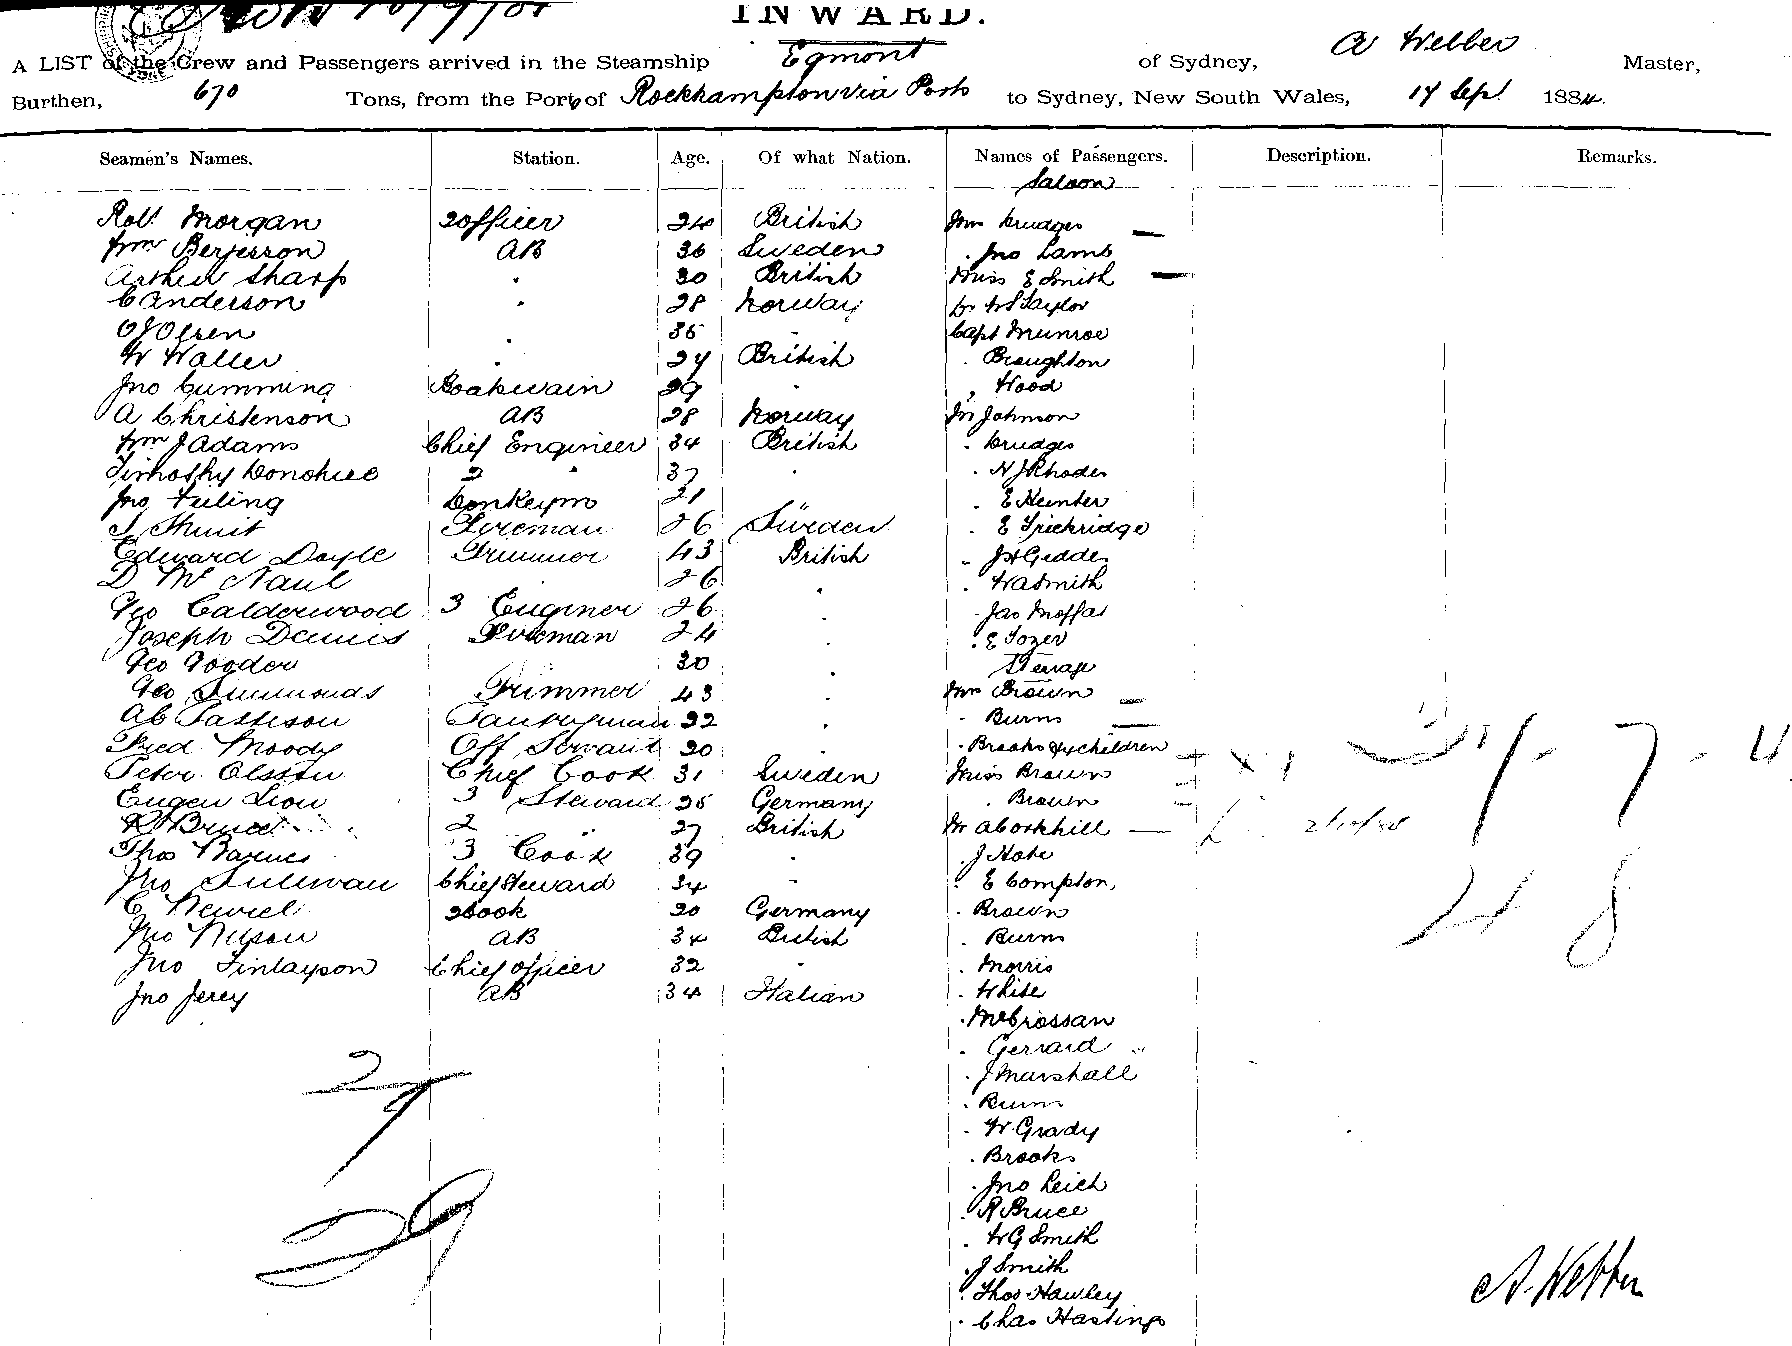 INWARD.
A LIST of the Crew and Passengers arrived in the Steamship Egmont of Sydney, A Webber Master,
Burthen, 670 Tons, from the Port of Rockhampton via Ports to Sydney, New South Wales, 14 Sep! 1884.
Seamen's Names. Station. Age. Of what Nation. Names of Passengers. Description. Remarks.
Saloon
Robt Morgan 2 officer 24 British Mrs Drudges
Wm Berjesson AB 36 Sweden . Jno Lamb
Arthur Sharp . 30 British Miss E Smith
C Anderson . 28 Norway Dr W S Taylor
O J Olsen . 35 . Capt Munroe
W Waller . 24 British . Broughton
Jno Cumming Boatswain 29 . . Wood
A Christenson AB 28 Norway Mr Johnson
Wm J Adams Chief Engineer 34 British . Drudges
Timothy Donohue 2 " 37 . . N J Rhodes
Jno Tuling Donkeym 21 . E Hunter
Foreman 26 Sweden . E Trickridge
Edward Doyle Trimmer 43 British . J H Geddes
D McNaul 26 . . W A Smith
Geo Calderwood 3 Enginer 26 . Jas Moffat
Joseph Dennis Foreman 24 . . E Tozer
Geo Gooder 30 Sterrage
Geo Simmonds Trimmer 43 . Mrs Brown
Ab Pattison 22 . . Burns
Fred Moody Off Servant 20 . . Brooks & 4 children
Peter Chief Cook 31 Sweden Miss Brown
Eugen Lion 3 Steward 25 Germany . Brown
R Bruce 2 " 27 British Mr A Corkhill
Thos Barnes 3 Cook 39 . . J Hate
Jno Sullivan Chief Steward 34 . . E Compton
C 2 Cook 20 Germany . Brown
Jno Nilson AB 34 British . Burns
Jno Finlayson Chief officer 32 . . Morris
Jno Jerey AB 34 Italian . White
. McCrossan
. Gerrard
. J Marshall
. Burns
. W. Grady
. Brooks
. Jno Leich
. R Bruce
. W G Smith
. J Smith
. Thos Hawley
. Chas Hastings
29
29
1 - 7 - 4
2 8
A. Webber